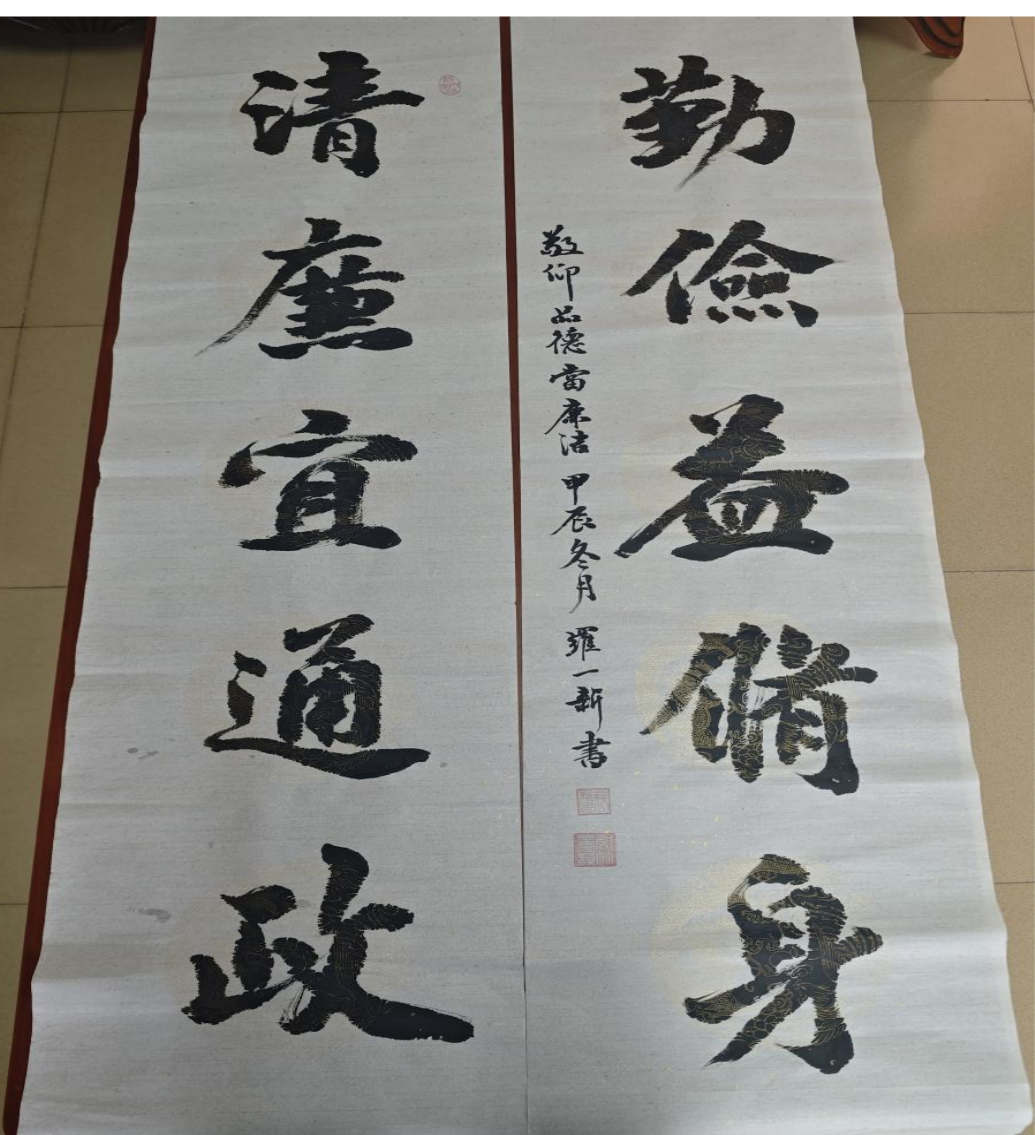 勤儉益脩身
敬仰品德當廉洁 甲辰冬月 羅一新書
清廉宜通政